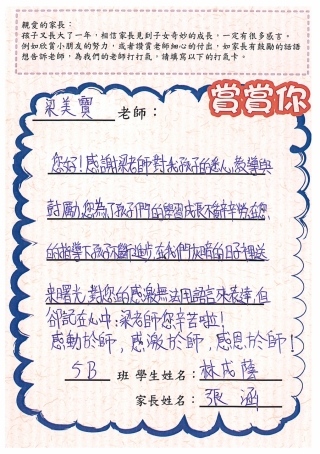 親愛的家長：
孩子又長大了一年，相信家長見到子女奇妙的成長，一定有很多感言。
例如欣賞小朋友的努力，或者讚賞老師細心的付出，如家長有鼓勵的話語
想告訴老師，為我們的老師打打氣，請填寫以下的打氣卡。
賞賞你
梁美寶 老師：
您好！感謝梁老師對我孩子的悉心教導與
鼓勵，您為了孩子們的學習成長不斷辛勞，在您
的指導下孩子不斷進步，在我們灰暗的日子裡送
來曙光，對您的感激無法用語言來表達，但
卻記在心中：梁老師您辛苦啦！
感動於師，感激於師，感恩於師！
5B 班 學生姓名：林成蔭
家長姓名：張涵